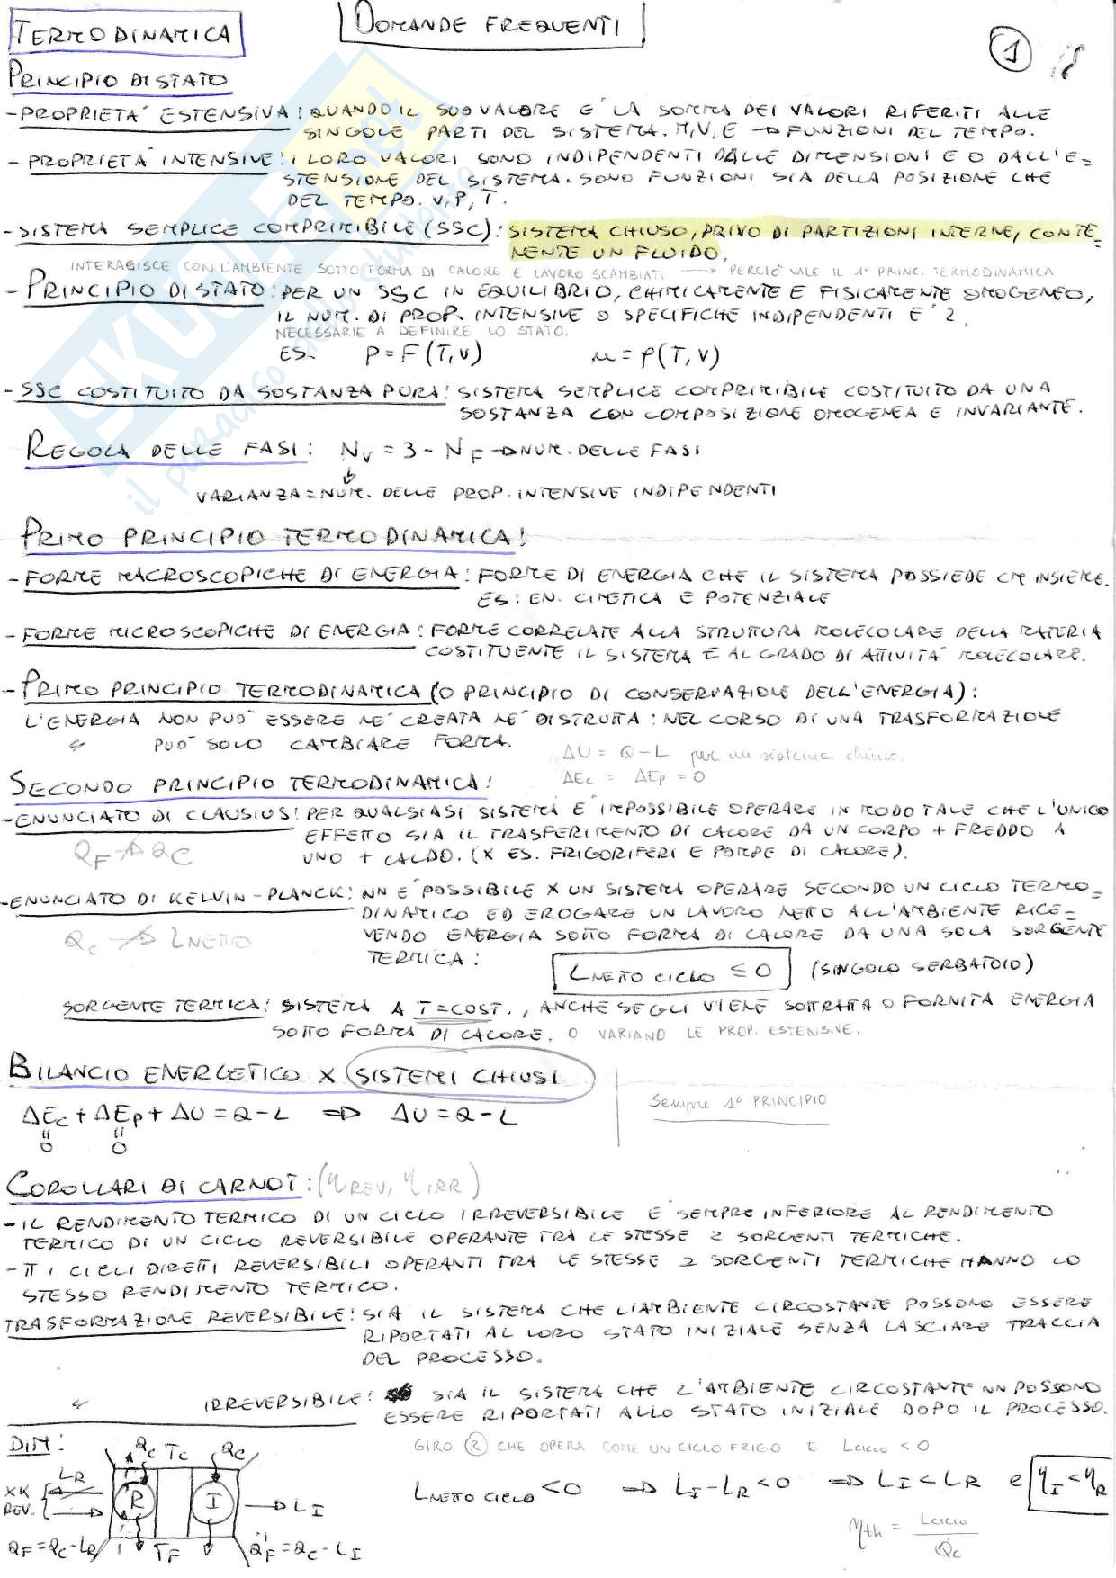 TERMODINAMICA
DOMANDE FREQUENTI
1
PRINCIPIO DI STATO
- PROPRIETA' ESTENSIVA: QUANDO IL SUO VALORE E' LA SOMMA DEI VALORI RIFERITI ALLE
SINGOLE PARTI DEL SISTEMA. M, V, E → FUNZIONI DEL TEMPO.
- PROPRIETA' INTENSIVE: I LORO VALORI SONO INDIPENDENTI DALLE DIMENSIONI E O DALL'E-
STENSIONE DEL SISTEMA. SONO FUNZIONI SIA DELLA POSIZIONE CHE
DEL TEMPO. V, P, T.
- SISTEMA SEMPLICE COMPRIMIBILE (SSC): SISTEMA CHIUSO, PRIVO DI PARTIZIONI INTERNE, CONTE-
NENTE UN FLUIDO.
INTERAGISCE CON L'AMBIENTE SOTTO FORMA DI CALORE E LAVORO SCAMBIATI → PERCIO' VALE IL 1° PRINC. TERMODINAMICA
- PRINCIPIO DI STATO: PER UN SSC IN EQUILIBRIO, CHIMICAMENTE E FISICAMENTE OMOGENEO,
IL NUM. DI PROP. INTENSIVE O SPECIFICHE INDIPENDENTI E' 2.
NECESSARIE A DEFINIRE LO STATO.
ES. P = F(T,V) u = f(T,V)
- SSC COSTITUITO DA SOSTANZA PURA: SISTEMA SEMPLICE COMPRIMIBILE COSTITUITO DA UNA
SOSTANZA CON COMPOSIZIONE OMOGENEA E INVARIANTE.
REGOLA DELLE FASI: Nv = 3 - NF → NUM. DELLE FASI
↓
VARIANZA = NUM. DELLE PROP. INTENSIVE INDIPENDENTI
PRIMO PRINCIPIO TERMODINAMICA:
- FORME MACROSCOPICHE DI ENERGIA: FORME DI ENERGIA CHE IL SISTEMA POSSIEDE CM INSIEME.
ES: EN. CINETICA E POTENZIALE
- FORME MICROSCOPICHE DI ENERGIA: FORME CORRELATE ALLA STRUTTURA MOLECOLARE DELLA MATERIA
COSTITUENTE IL SISTEMA E AL GRADO DI ATTIVITA' MOLECOLARE.
- PRIMO PRINCIPIO TERMODINAMICA (O PRINCIPIO DI CONSERVAZIONE DELL'ENERGIA):
L'ENERGIA NON PUO' ESSERE NE' CREATA NE' DISTRUTTA: NEL CORSO DI UNA TRASFORMAZIONE
PUO' SOLO CAMBIARE FORMA.
ΔU = Q - L per un sistema chiuso.
ΔEc = ΔEp = 0
SECONDO PRINCIPIO TERMODINAMICA:
- ENUNCIATO DI CLAUSIUS: PER QUALSIASI SISTEMA E' IMPOSSIBILE OPERARE IN MODO TALE CHE L'UNICO
EFFETTO SIA IL TRASFERIMENTO DI CALORE DA UN CORPO + FREDDO A
UNO + CALDO. (X ES. FRIGORIFERI E POMPE DI CALORE).
QF ↛ QC
- ENUNCIATO DI KELVIN-PLANCK: NN E' POSSIBILE X UN SISTEMA OPERARE SECONDO UN CICLO TERMO-
DINAMICO ED EROGARE UN LAVORO NETTO ALL'AMBIENTE RICE-
VENDO ENERGIA SOTTO FORMA DI CALORE DA UNA SOLA SORGENTE
TERMICA:
Qc ↛ LNETTO
LNETTO CICLO ≤ 0 (SINGOLO SERBATOIO)
SORGENTE TERMICA: SISTEMA A T=COST., ANCHE SE GLI VIENE SOTTRATTA O FORNITA ENERGIA
SOTTO FORMA DI CALORE. O VARIANO LE PROP. ESTENSIVE.
BILANCIO ENERGETICO X SISTEMI CHIUSI
ΔEc + ΔEp + ΔU = Q - L ⇒ ΔU = Q - L
= 0 = 0
Sempre 1° PRINCIPIO
COROLLARI DI CARNOT: (ηREV, ηIRR)
- IL RENDIMENTO TERMICO DI UN CICLO IRREVERSIBILE E' SEMPRE INFERIORE AL RENDIMENTO
TERMICO DI UN CICLO REVERSIBILE OPERANTE TRA LE STESSE 2 SORGENTI TERMICHE.
- TT I CICLI DIRETTI REVERSIBILI OPERANTI TRA LE STESSE 2 SORGENTI TERMICHE HANNO LO
STESSO RENDIMENTO TERMICO.
TRASFORMAZIONE REVERSIBILE: SIA IL SISTEMA CHE L'AMBIENTE CIRCOSTANTE POSSONO ESSERE
RIPORTATI AL LORO STATO INIZIALE SENZA LASCIARE TRACCIA
DEL PROCESSO.
IRREVERSIBILE: SIA IL SISTEMA CHE L'AMBIENTE CIRCOSTANTE NN POSSONO
ESSERE RIPORTATI ALLO STATO INIZIALE DOPO IL PROCESSO.
DIM:
GIRO R CHE OPERA COME UN CICLO FRIGO E Lciclo < 0
Qc Tc Qc
LR
XK REV.
R I → LI
LNETTO CICLO < 0 ⇒ LI - LR < 0 ⇒ LI < LR e ηI < ηR
QF = Qc - LR TF QF = Qc - LI
ηth = Lciclo / Qc
SKUOLA.net
il paradiso dello studente